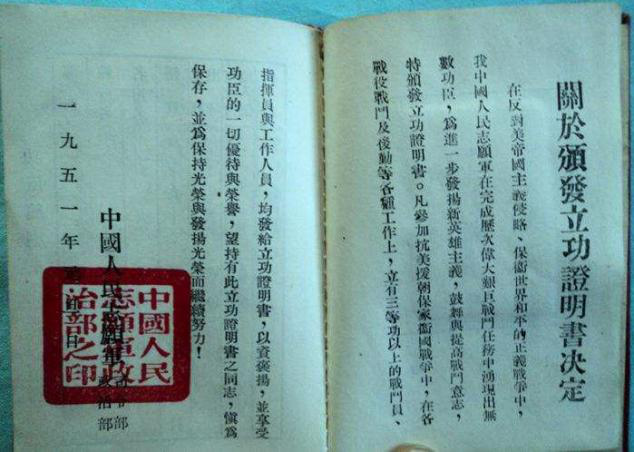 關於頒發立功證明書決定
在反對美帝國主義侵略、保衞世界和平的正義戰爭中，
我中國人民志願軍在完成歷次偉大艱巨戰鬥任務中湧現出無
數功臣，爲進一步發揚新英雄主義，鼓舞與提高戰鬥意志，
特頒發立功證明書。凡參加抗美援朝保家衞國戰爭中，在各
戰役戰鬥及後勤等各種工作上，立有三等功以上的戰鬥員、
指揮員與工作人員，均發給立功證明書，以資褒揚，並享受
功臣的一切優待與榮譽，望持有此立功證明書之同志，愼爲
保存，並爲保持光榮與發揚光榮而繼續努力！
中國人民志願軍
司令部
政治部
一九五一年 月 日
中國人民
志願軍政
治部之印